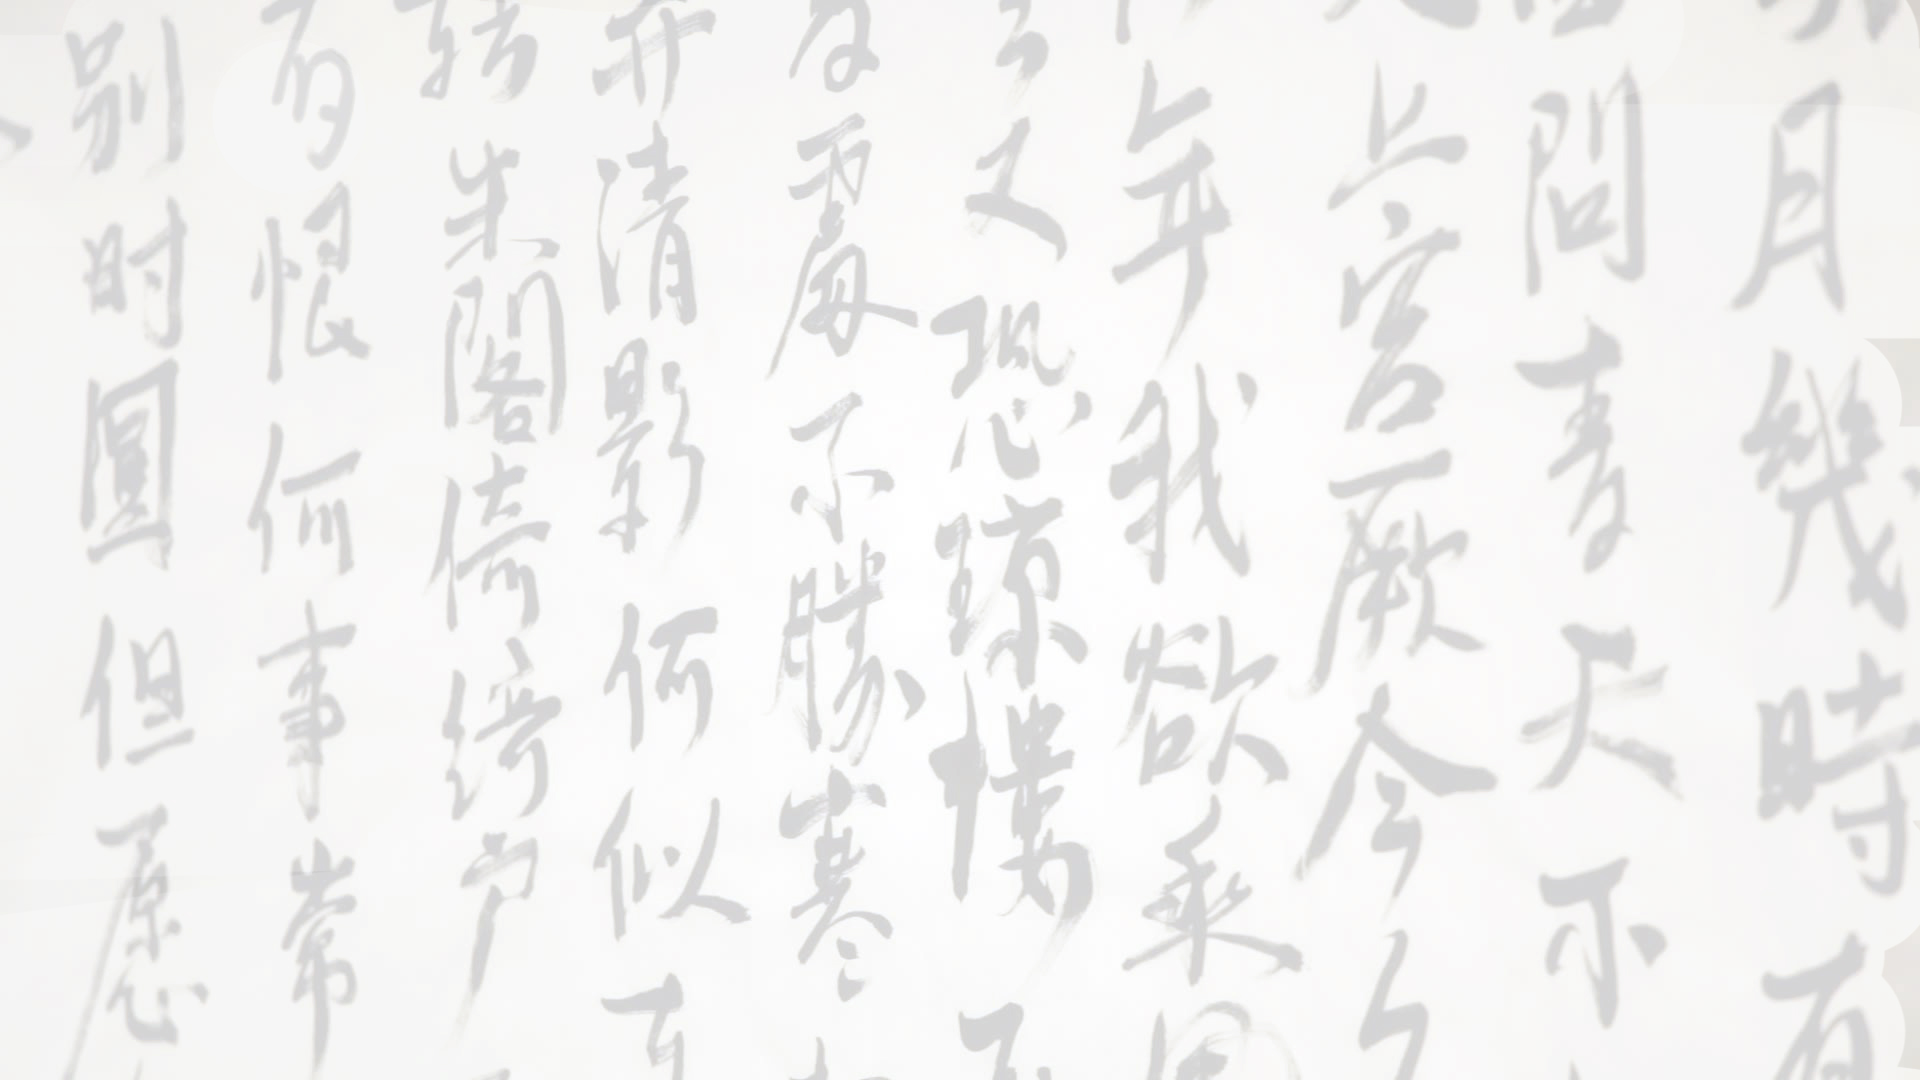 明月幾時有
問青天不
上宮厥今夕
年我欲乘風
又恐瓊樓玉
處不勝寒
弄清影何似在
轉朱閣倚綺戶
有恨何事常
别时圓但愿